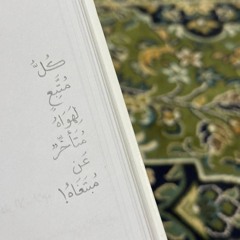 كُلُّ
مُتَّبِعٍ
لِهَوَاهُ
مُتَأَخِّرٌ
عَن
مُبْتَغَاهُ!